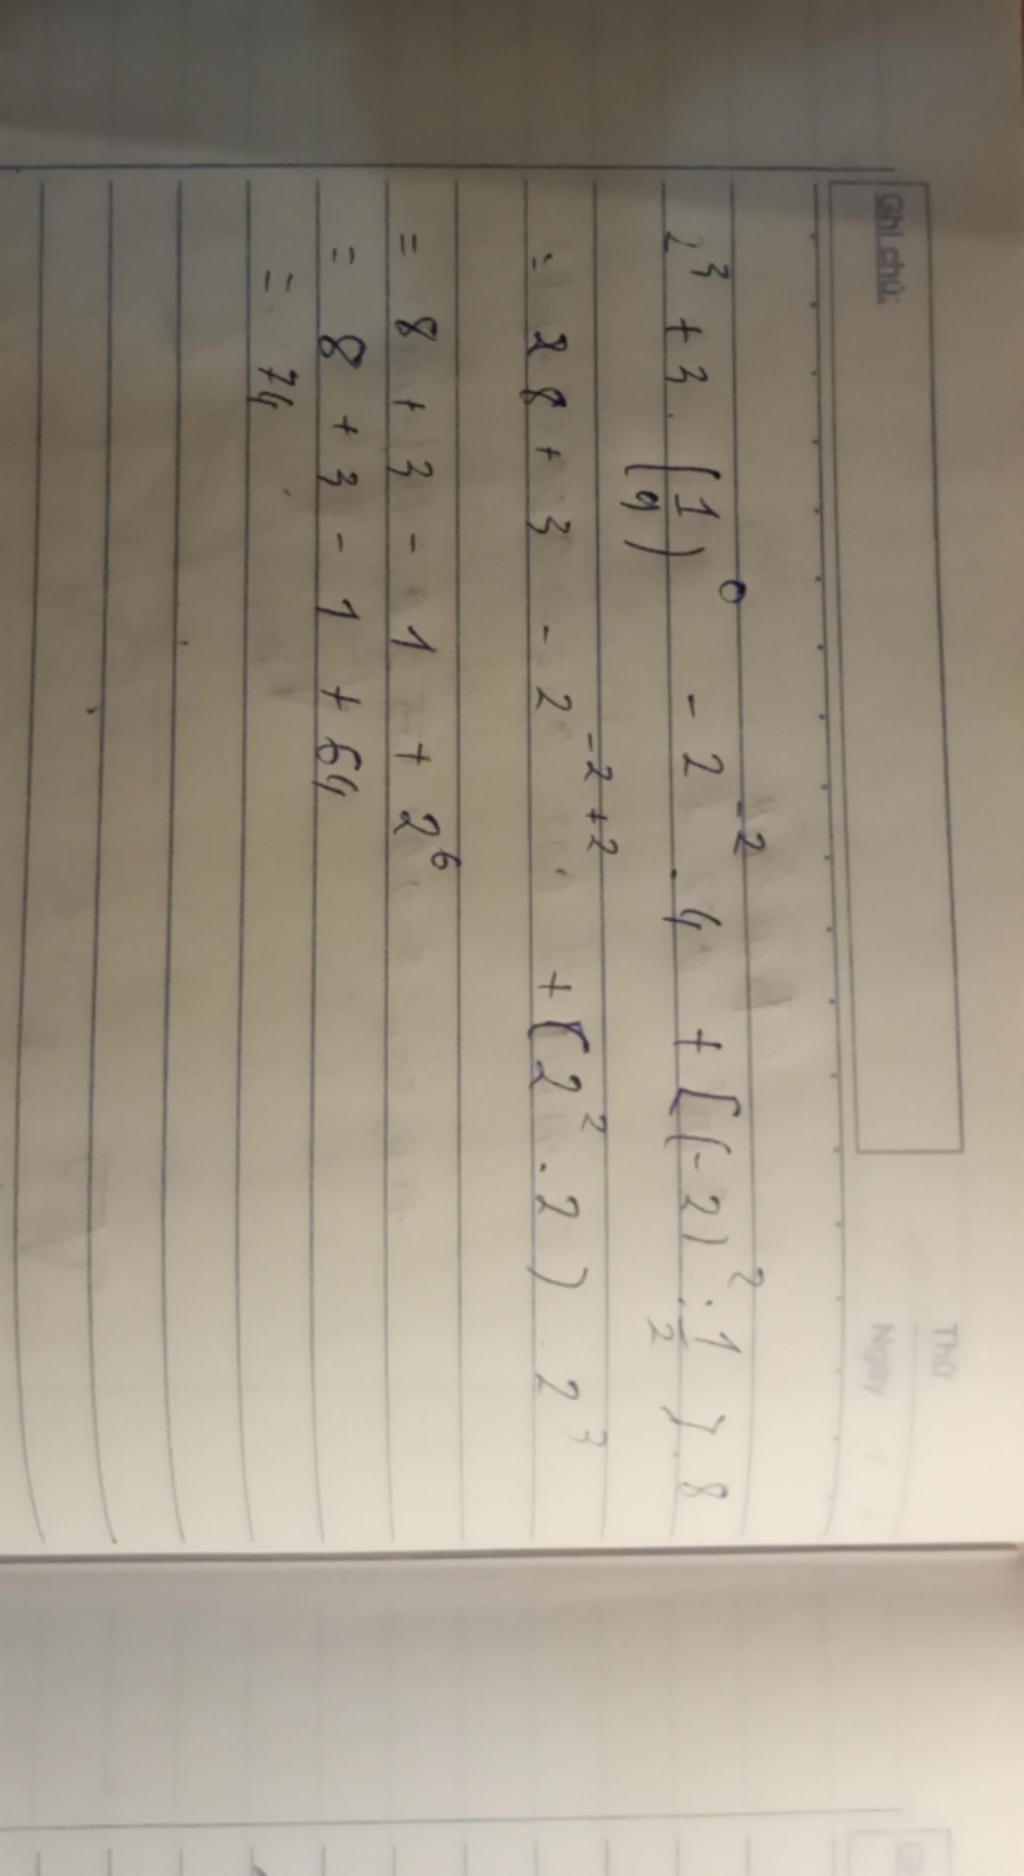 Ghi chú:
Thứ
Ngày
2³ + 3 . (1/9)⁰ - 2⁻² . 4 + [(-2)² : 1/2] . 8
= 8 + 3 - 2⁻²⁺² + (2² . 2) . 2³
= 8 + 3 - 1 + 2⁶
= 8 + 3 - 1 + 64
= 74